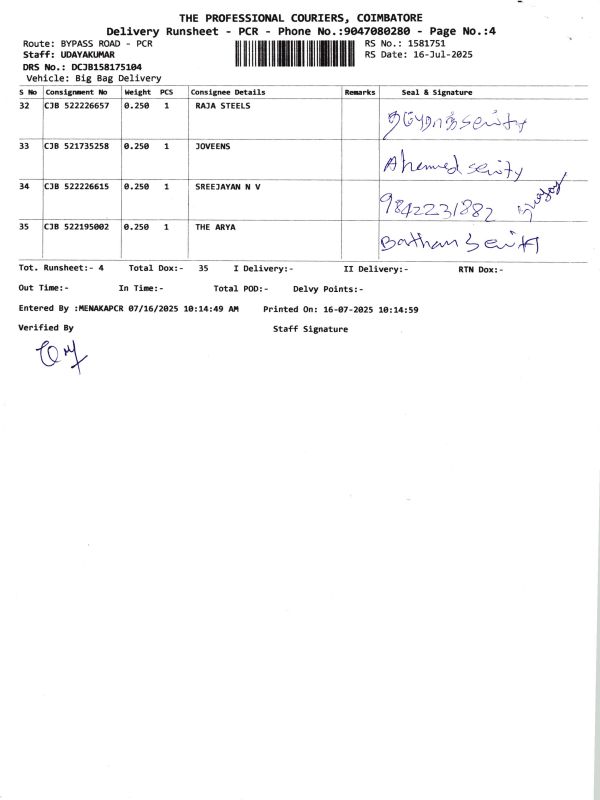 THE PROFESSIONAL COURIERS, COIMBATORE
Delivery Runsheet - PCR - Phone No.:9047080280 - Page No.:4
Route: BYPASS ROAD - PCR RS No.: 1581751
Staff: UDAYAKUMAR RS Date: 16-Jul-2025
DRS No.: DCJB158175104
Vehicle: Big Bag Delivery
S No Consignment No Weight PCS Consignee Details Remarks Seal & Signature
32 CJB 522226657 0.250 1 RAJA STEELS
33 CJB 521735258 0.250 1 JOVEENS Ahemed
34 CJB 522226615 0.250 1 SREEJAYAN N V 9842231882
35 CJB 522195002 0.250 1 THE ARYA
Tot. Runsheet:- 4 Total Dox:- 35 I Delivery:- II Delivery:- RTN Dox:-
Out Time:- In Time:- Total POD:- Delvy Points:-
Entered By :MENAKAPCR 07/16/2025 10:14:49 AM Printed On: 16-07-2025 10:14:59
Verified By Staff Signature